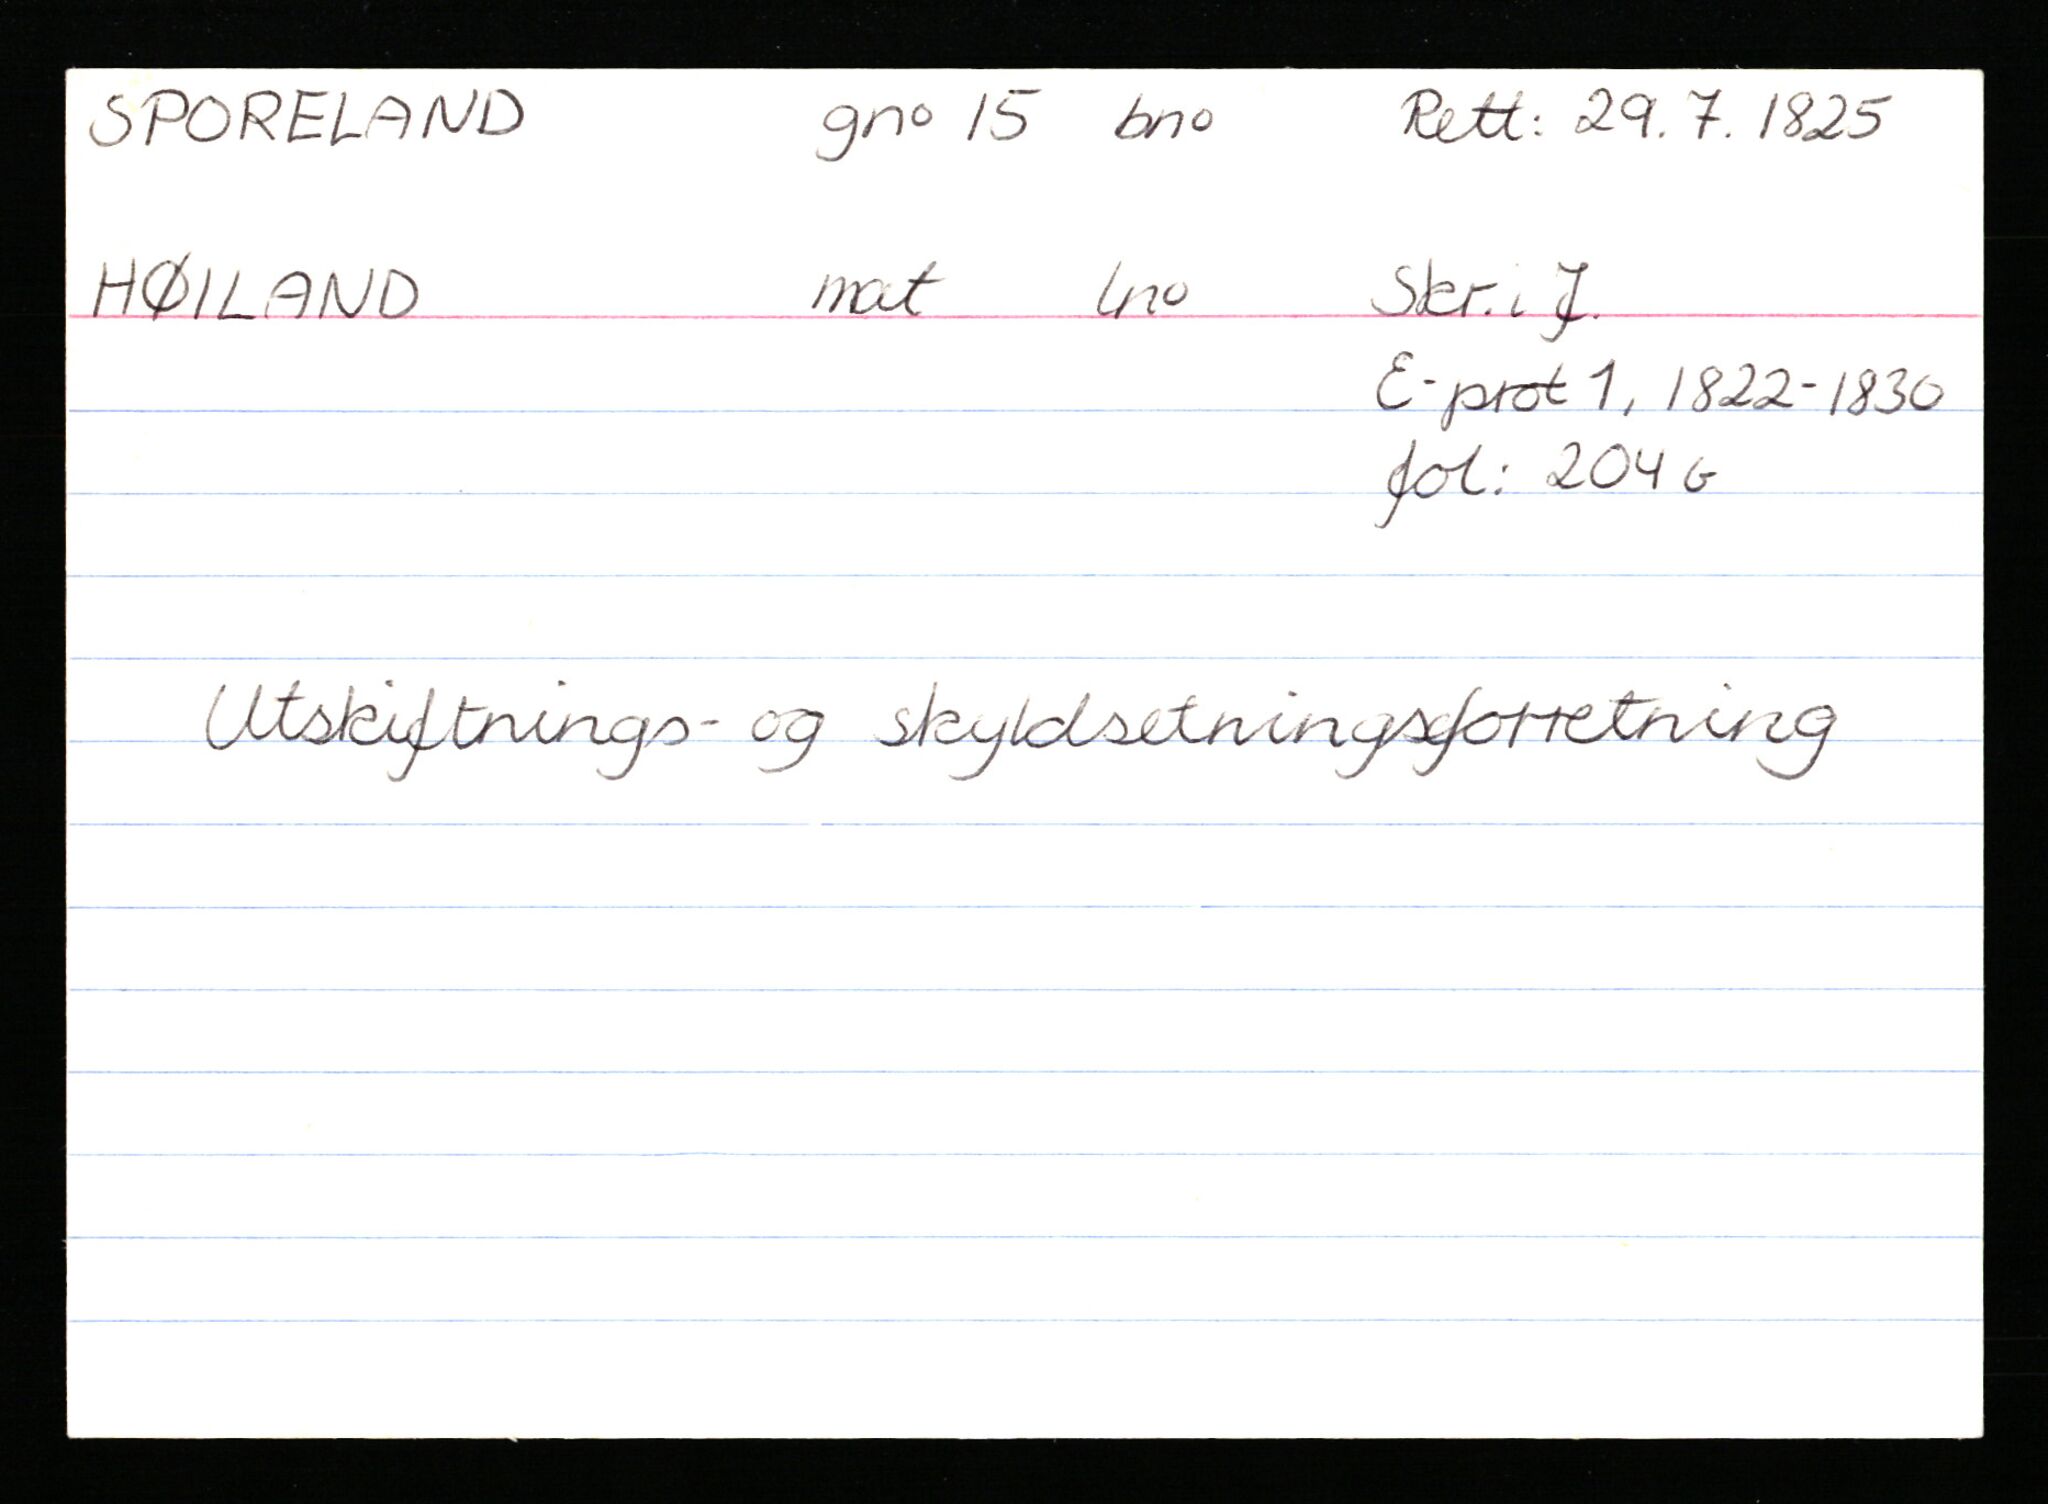 SPORELAND gno 15 bno Rett: 29.7.1825
HØILAND mat lno Skr. i J.
E-prot 1, 1822-1830
fol: 204 b
Utskiftnings- og skyldsetningsforretning